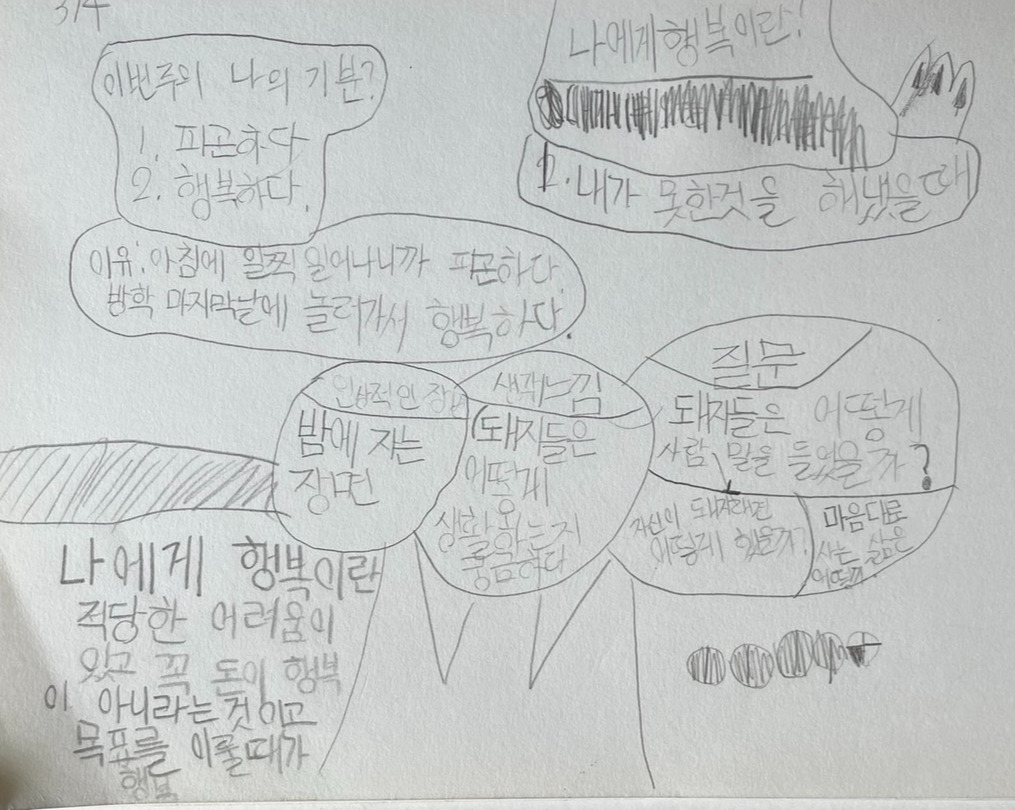 3/4
이번주의 나의 기분?
1. 피곤하다
2. 행복하다.
이유: 아침에 일찍 일어나니까 피곤하다.
방학 마지막날에 놀러가서 행복하다.
나에게 행복이란!
1. 내가 못한것을 해냈을때
인상적인 장면
밤에 자는
장면
생각느낌
돼지들은
어떻게
생활하는지
궁금하다
질문
돼지들은 어떻게
사람 말을 들었을까?
자신이 돼지라면
어떻게 했을까?
마음대로
사는 삶은
어떨까
나에게 행복이란
적당한 어려움이
있고 꼭 돈이 행복
이 아니라는 것이고
목표를 이룰때가
행복